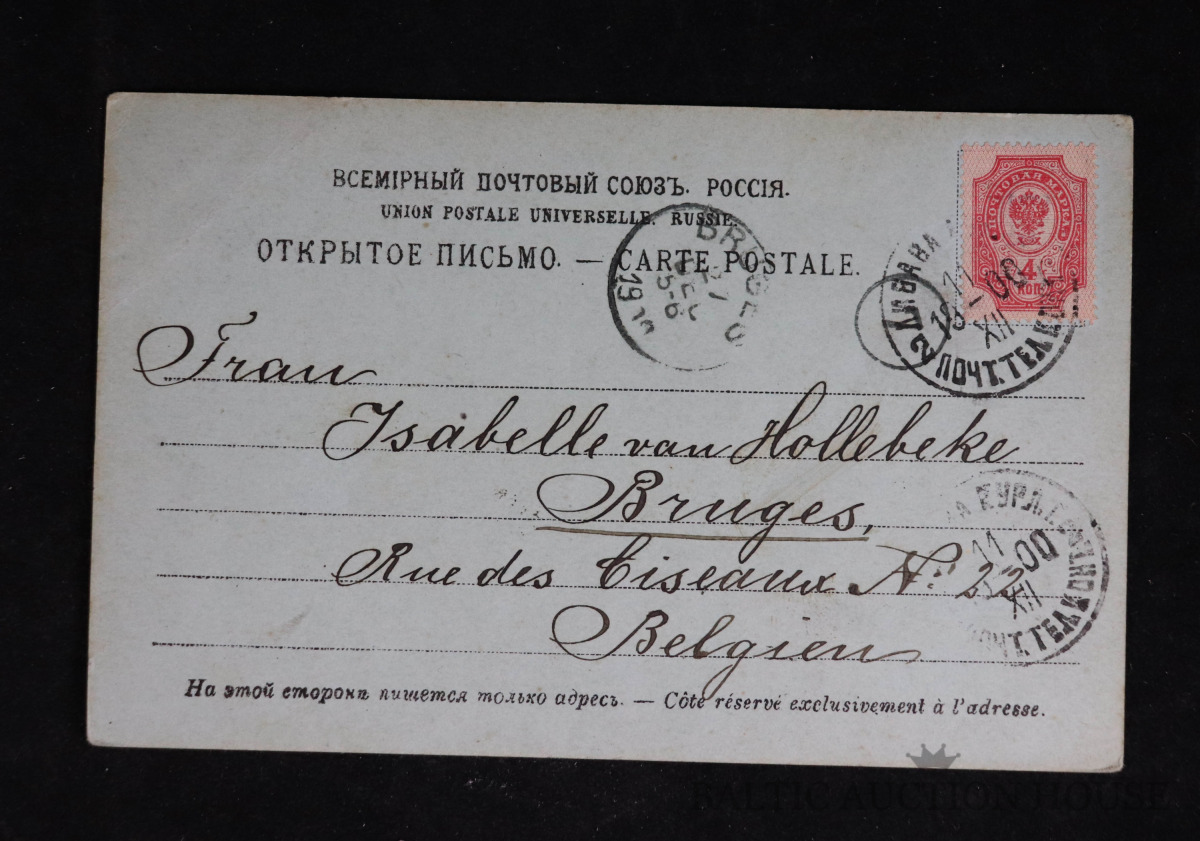 ВСЕМІРНЫЙ ПОЧТОВЫЙ СОЮЗЪ. РОССІЯ.
UNION POSTALE UNIVERSELLE. RUSSIE.
ОТКРЫТОЕ ПИСЬМО. — CARTE POSTALE.
ПОЧТОВАЯ МАРКА
4
КОП
ЛИБАВА
11
XII
ПОЧТ. ТЕЛ
Frau
Isabelle van Hollebeke
Bruges,
Rue des Ciseaux No. 22
Belgien
КУРЛ.
11
XII
ПОЧТ. ТЕЛ
На этой сторонѣ пишется только адресъ. — Côté réservé exclusivement à l'adresse.
BALTIC AUCTION HOUSE